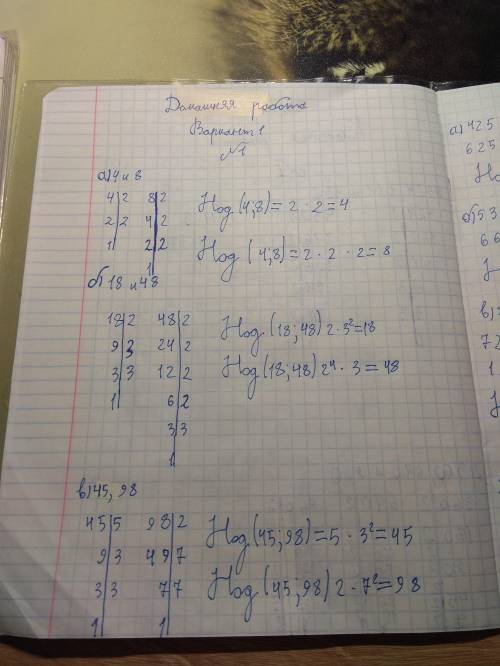 Домашняя работа
Вариант 1
№1
а) 4 и 8
4|2 8|2
2|2 4|2
1| 2|2
1
Нод (4;8)=2·2=4
Нод (4;8)=2·2·2=8
б) 18 и 48
18|2 48|2
9|3 24|2
3|3 12|2
1| 6|2
3|3
1
Нод (18;48) 2·3²=18
Нод (18;48) 2⁴·3=48
в) 45, 98
45|5 98|2
9|3 49|7
3|3 7|7
1| 1|
Нод (45;98)=5·3²=45
Нод (45;98) 2·7²=98
а) 425
625
б) 53
66
в)
72
1